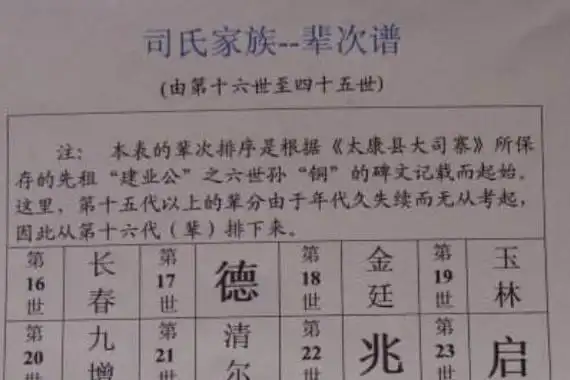 司氏家族--辈次谱
(由第十六世至四十五世)
注: 本表的辈次排序是根据《太康县大司寨》所保
存的先祖“建业公”之六世孙“铜”的碑文记载而起始。
这里,第十五代以上的辈分由于年代久失续而无从考起,
因此从第十六代(辈)排下来。
第16世 长春 第17世 德 第18世 金廷 第19世 玉林
第20世 九增 第21世 清尔 第22世 兆 第23世 启